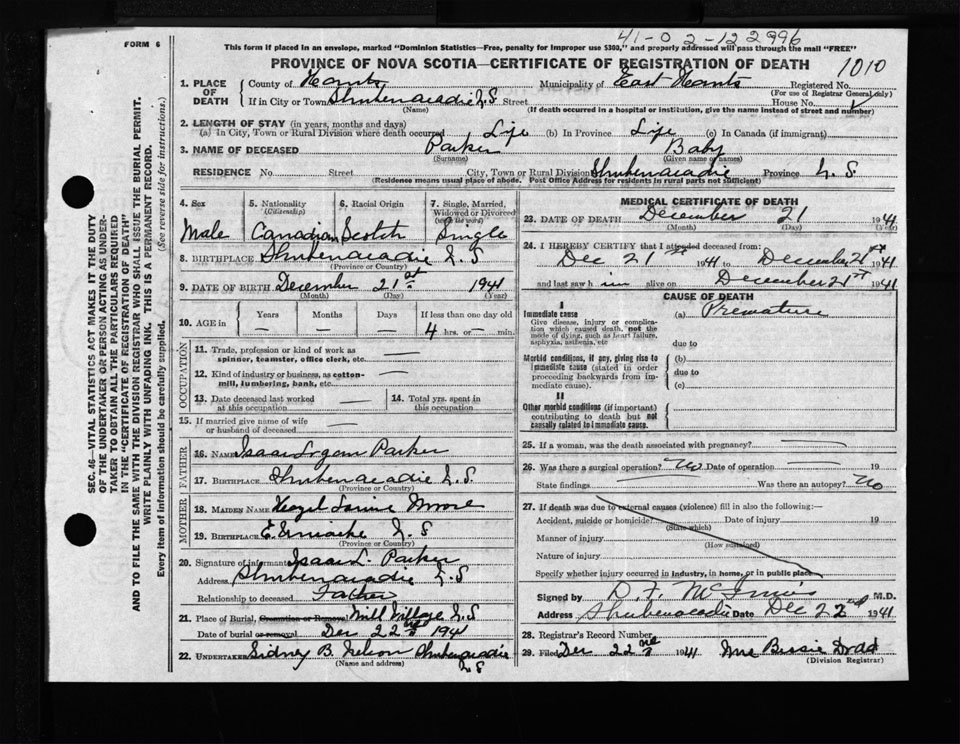 41-0 2-122996
FORM 6
This form if placed in an envelope, marked "Dominion Statistics—Free, penalty for improper use $300," and properly addressed will pass through the mail "FREE"
PROVINCE OF NOVA SCOTIA—CERTIFICATE OF REGISTRATION OF DEATH
1010
1. PLACE OF DEATH
County of Hants Municipality of East Hants Registered No.
(For use of Registrar General only)
If in City or Town Shubenacadie N.S Street House No.
(Name) (If death occurred in a hospital or institution, give the name instead of street and number)
2. LENGTH OF STAY (in years, months and days)
(a) In City, Town or Rural Division where death occurred Life (b) In Province Life (c) In Canada (if immigrant)
3. NAME OF DECEASED Parker Baby
(Surname) (Given name or names)
RESIDENCE No. Street City, Town or Rural Division Shubenacadie Province N.S.
(Residence means usual place of abode. Post Office Address for residents in rural parts not sufficient)
4. Sex 5. Nationality (Citizenship) 6. Racial Origin 7. Single, Married, Widowed or Divorced
Male Canadian Scotch Single
8. BIRTHPLACE Shubenacadie N.S
(Province or Country)
9. DATE OF BIRTH December 21st 1941
(Month) (Day) (Year)
10. AGE in Years Months Days If less than one day old
— — — 4 hrs. or — min.
OCCUPATION
11. Trade, profession or kind of work as spinner, teamster, office clerk, etc. —
12. Kind of industry or business, as cotton-mill, lumbering, bank, etc. —
13. Date deceased last worked at this occupation — 14. Total yrs. spent in this occupation —
15. If married give name of wife or husband of deceased —
FATHER
16. NAME Isaac Logan Parker
17. BIRTHPLACE Shubenacadie N.S.
(Province or Country)
MOTHER
18. MAIDEN NAME Hazel Moore
19. BIRTHPLACE E. N.S
(Province or Country)
20. Signature of informant Isaac L. Parker
Address Shubenacadie N.S
Relationship to deceased Father
21. Place of Burial, Cremation or Removal Mill Village N.S
Date of burial or removal Dec 22nd 1941
22. UNDERTAKER Sidney B. Nelson Shubenacadie
(Name and address) N.S
MEDICAL CERTIFICATE OF DEATH
23. DATE OF DEATH December 21 1941
(Month) (Day) (Year)
24. I HEREBY CERTIFY that I attended deceased from:
Dec 21st 1941 to December 21st 1941
and last saw him alive on December 21st 1941
CAUSE OF DEATH
I
Immediate cause (a) Premature
Give disease, injury or complication which caused death, not the mode of dying, such as heart failure, asphyxia, asthenia, etc
due to
Morbid conditions, if any, giving rise to immediate cause (stated in order proceeding backwards from immediate cause).
(b)
due to
(c)
II
Other morbid conditions (if important) contributing to death but not causally related to immediate cause.
25. If a woman, was the death associated with pregnancy? —
26. Was there a surgical operation? No Date of operation — 19
State findings — Was there an autopsy? No
27. If death was due to external causes (violence) fill in also the following:—
Accident, suicide or homicide? Date of injury 19
(State which)
Manner of injury
(How sustained)
Nature of injury
Specify whether injury occurred in industry, in home, or in public place
Signed by D.F. McInnis M.D.
Address Shubenacadie Date Dec 22nd 1941
28. Registrar's Record Number
29. Filed Dec 22nd 1941 Mrs Bessie
(Division Registrar)
SEC. 46—VITAL STATISTICS ACT MAKES IT THE DUTY
OF THE UNDERTAKER OR PERSON ACTING AS UNDER-
TAKER TO OBTAIN ALL THE PARTICULARS REQUIRED
IN THE "CERTIFICATE OF REGISTRATION OF DEATH"
AND TO FILE THE SAME WITH THE DIVISION REGISTRAR WHO SHALL ISSUE THE BURIAL PERMIT.
WRITE PLAINLY WITH UNFADING INK. THIS IS A PERMANENT RECORD.
Every item of information should be carefully supplied. (See reverse side for instructions.)